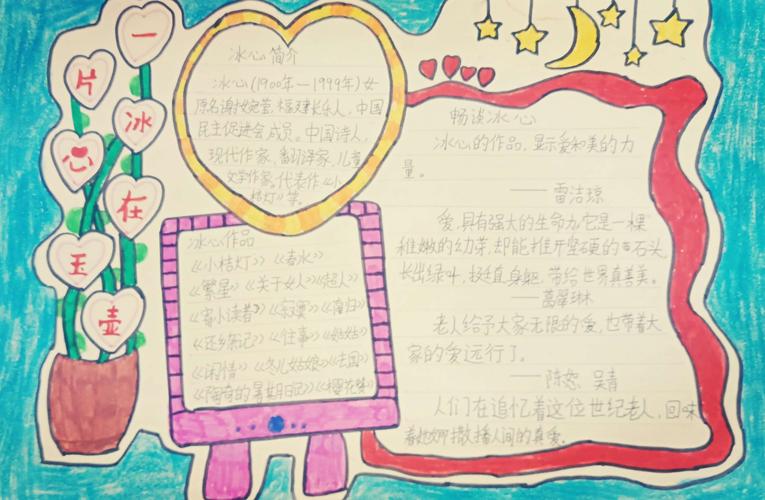 一
片
冰
心
在
玉
壶
冰心简介
冰心(1900年—1999年)女
原名谢婉莹,福建长乐人,中国
民主促进会成员。中国诗人,
现代作家,翻译家,儿童
文学作家。代表作《小
桔灯》等。
冰心作品
《小桔灯》《春水》
《繁星》《关于女人》《超人》
《寄小读者》《寂寞》《南归》
《还乡杂记》《往事》《姑姑》
《闲情》《冬儿姑娘》《去国》
《陶奇的暑期日记》《樱花赞》
畅谈冰心
冰心的作品,显示爱和美的力
量。
——雷洁琼
爱,具有强大的生命力,它是一棵
稚嫩的幼芽,却能推开坚硬的石头,
长出绿叶,挺直身躯,带给世界真善美。
——葛翠琳
老人给予大家无限的爱,也带着大
家的爱远行了。
——陈恕 吴青
人们在追忆着这位世纪老人,回味
着她播撒人间的真爱。